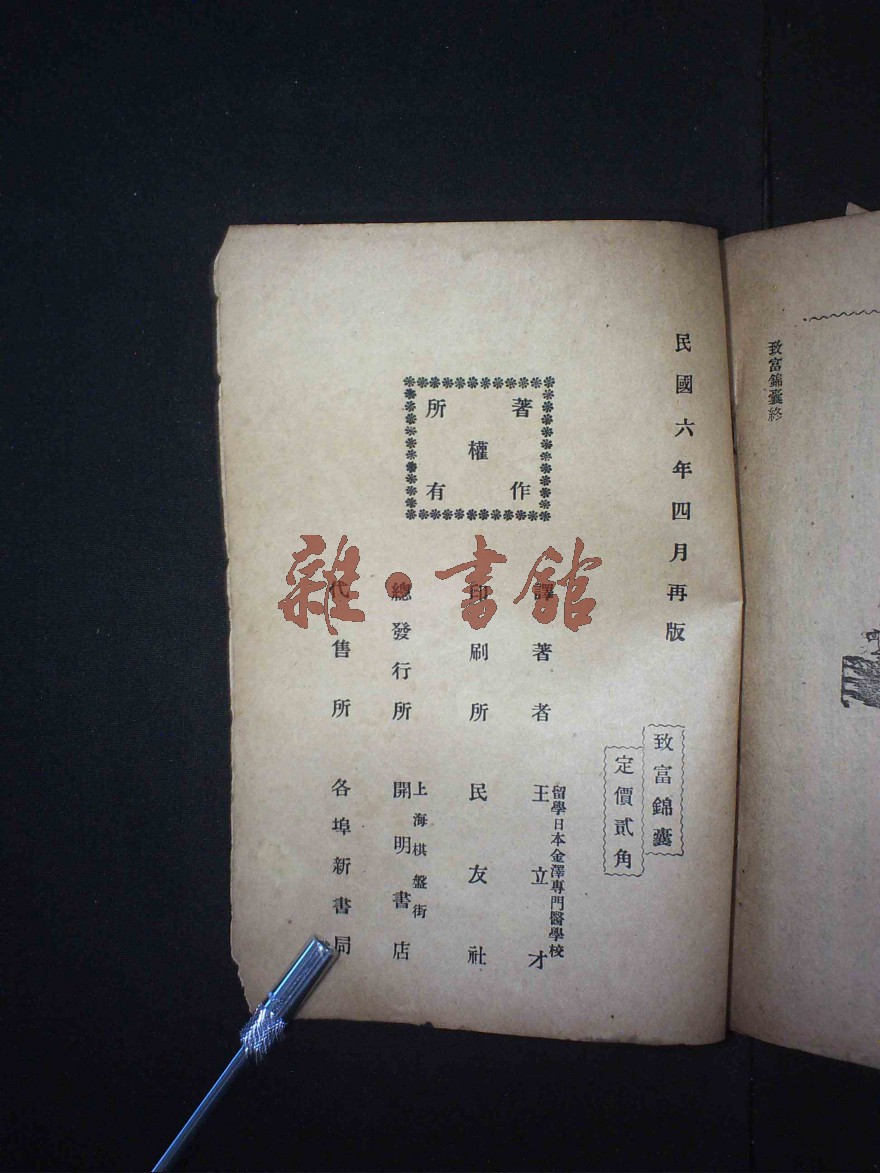 致富錦囊終
民國六年四月再版
致富錦囊
定價貳角
著作權所有
留學日本金澤專門醫學校
譯著者 王立才
印刷所 民友社
上海棋盤街
總發行所 開明書店
代售所 各埠新書局
雜·書館